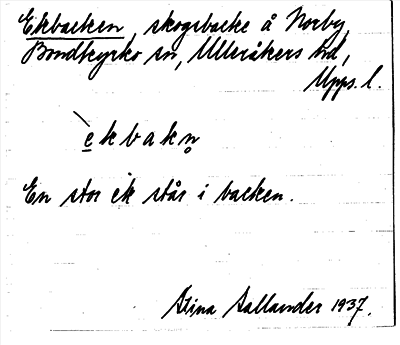 Ekbacken, skogsbacke å Norby,
Bondkyrko sn, Ulleråkers hd,
Upps. l.
`ekbakn̥
En stor ek står i backen.
Stina Sallander 1937.